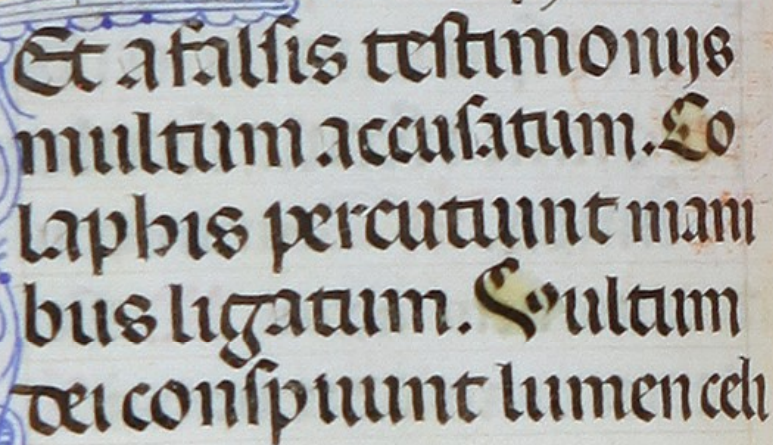 Et a falsis testimonijs
multum accusatum. Co
laphis percutiunt mani
bus ligatum. Vultum
dei conspuunt lumen celi